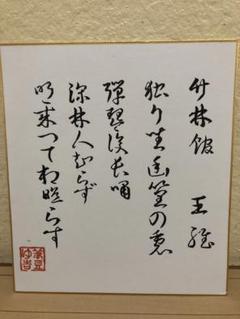 竹林館 王維
独り坐す幽篁の裏
弾琴復長嘯
深林人知らず
明月来つて相照らす